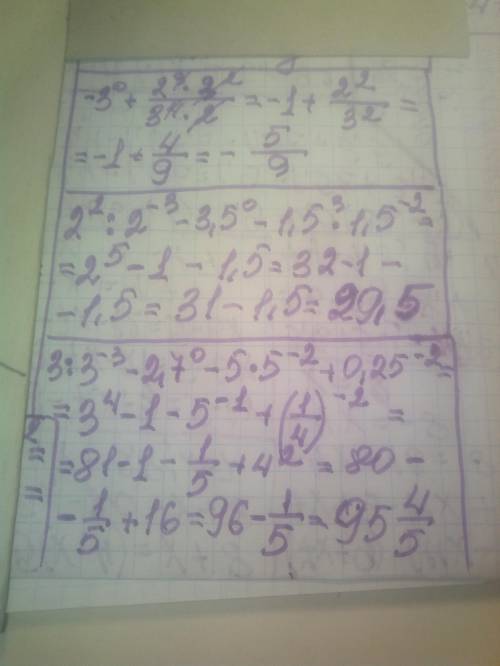 -3⁰ + (2⁴ · 3²)/(3⁴ · 2) = -1 + 2²/3² =
= -1 + 4/9 = - 5/9
2² : 2⁻³ - 3,5⁰ - 1,5³ · 1,5⁻² =
= 2⁵ - 1 - 1,5 = 32 - 1 -
- 1,5 = 31 - 1,5 = 29,5
3 : 3⁻³ - 2,7⁰ - 5 · 5⁻² + 0,25⁻² =
= 3⁴ - 1 - 5⁻¹ + (1/4)⁻² =
= 81 - 1 - 1/5 + 4² = 80 -
- 1/5 + 16 = 96 - 1/5 = 95 4/5